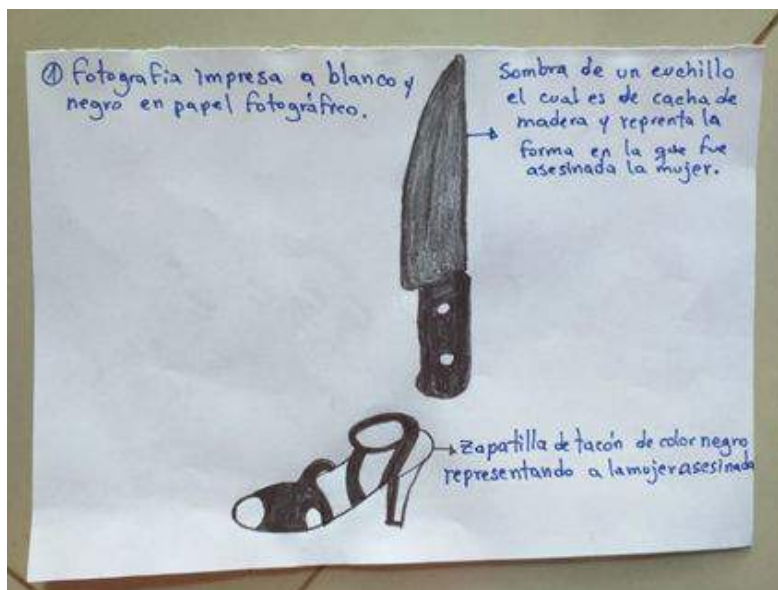 ① Fotografia impresa a blanco y
negro en papel fotográfico.
Sombra de un cuchillo
el cual es de cacha de
madera y reprenta la
forma en la que fue
asesinada la mujer.
Zapatilla de tacón de color negro
representando a la mujer asesinada